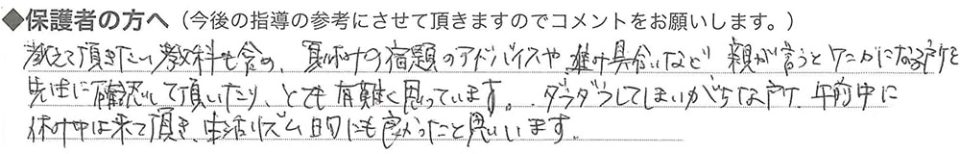 ◆保護者の方へ（今後の指導の参考にさせて頂きますのでコメントをお願いします。）
教えて頂きたい教科も含め、夏休みの宿題のアドバイスや進み具合いなど 親が言うとケンカになる所を
先生に確認して頂いたり、とても有難く思っています。ダラダラしてしまいがちな所、午前中に
休み中は来て頂き、生活リズム的にも良かったと思います。